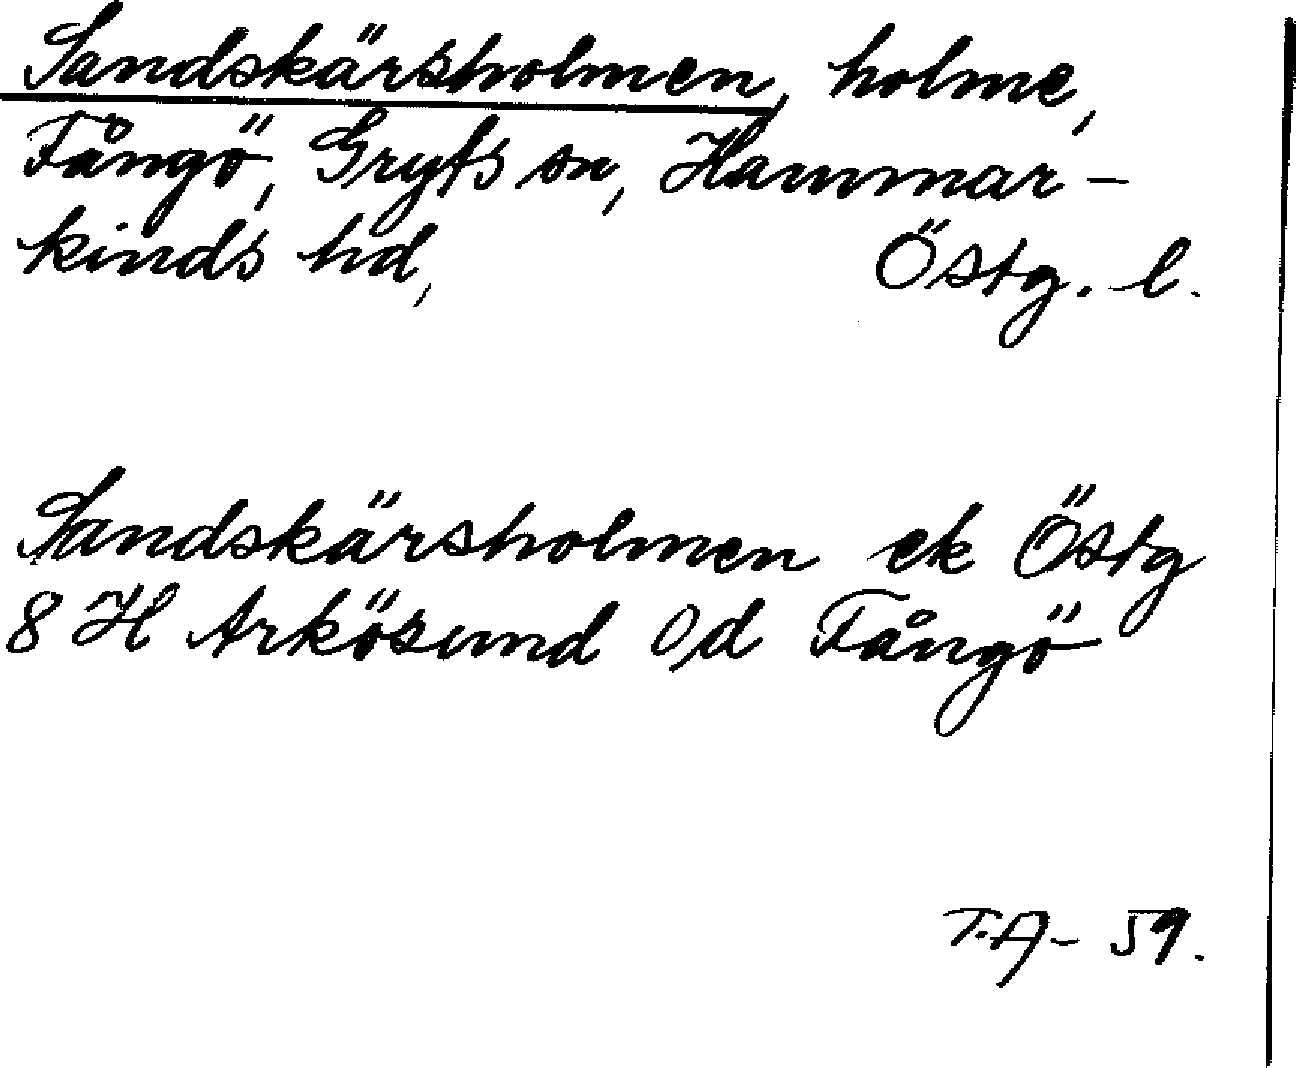 Sandskärsholmen, holme,
Fångö, Gryts sn, Hammar-
kinds hd, Östg. l.
Sandskärsholmen ek Östg
8 H Arkösund Od Fångö
T.A- 59.